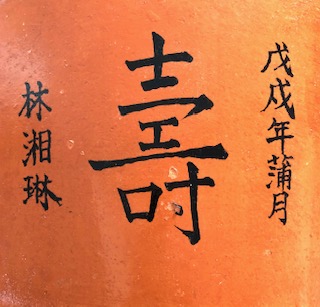 戊戌年蒲月
壽
林湘琳